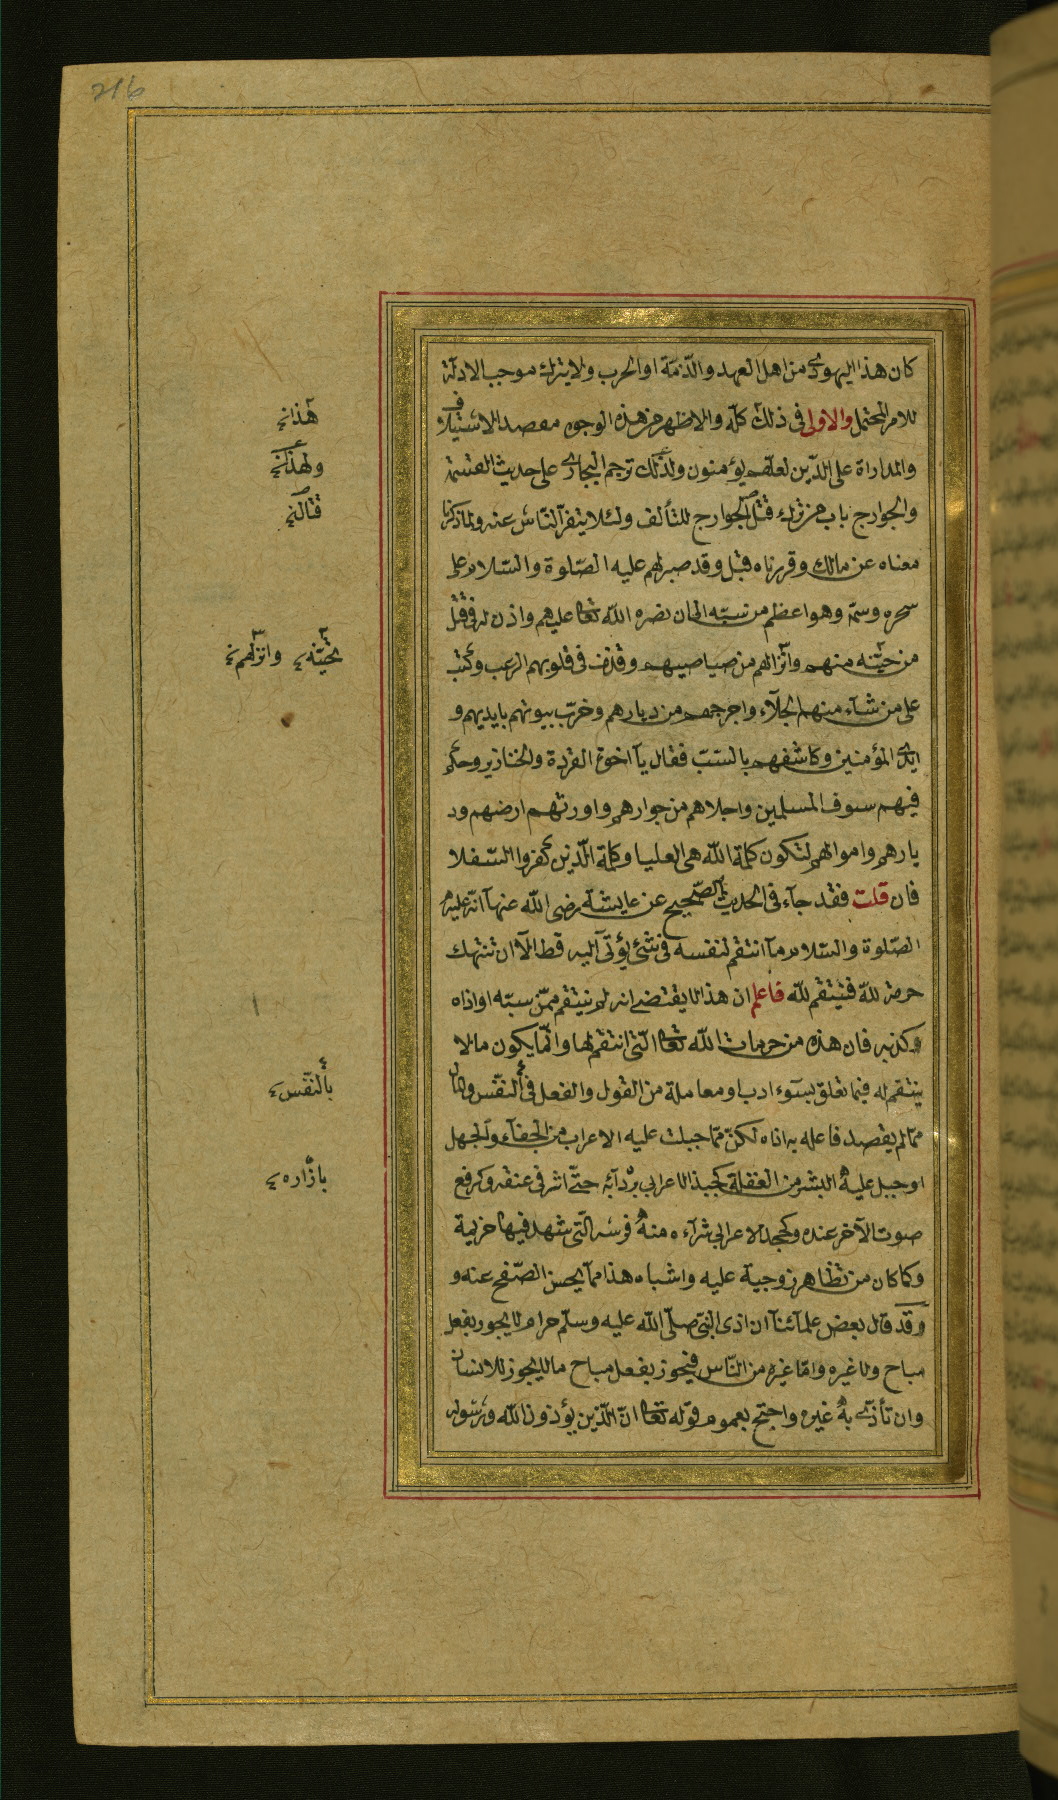 216
كان هذا اليهودى من اهل العهد والذمّة او الحرب ولا يترك موجب الادلّة
للامر المحتمل والاولى فى ذلك كلّه والاظهر من هذه الوجوه مقصد الاستيلاف
والمداراة على الدّين لعلّهم يؤمنون ولذلك ترجم البخارى على حديث القسمة
والخوارج باب من ترك قتل الخوارج للتألف ولئلا ينفر النّاس عنه ولما ذكرنا
معناه عن مالك وقررناه قبل وقد صبر لهم عليه الصّلوة والسّلام على
سحره وسمّه وهو اعظم من سبّه الى ان نصره اللّه تعا عليهم واذن له فى قتل
من حيّنه منهم وانزالهم من صياصيهم وقذف فى قلوبهم الرعب وكتب
على من شاء منهم الجلآء واخرجهم من ديارهم وخرّب بيوتهم بايديهم و
ايدى المؤمنين وكاشفهم بالسّبّ فقال يآ اخوة القردة والخنازير وحكّم
فيهم سيوف المسلمين واجلاهم من جوارهم واورثهم ارضهم ود
يارهم واموالهم لتكون كلمة اللّه هى العليا وكلمة الّذين كفروا السّفلا
فان قلت فقد جآء فى الحديث الصّحيح عن عايشة رضى اللّه عنها انّه عليه
الصّلوة والسّلام ما انتقم لنفسه فى شئ يؤتى اليه قط الّا ان تنتهك
حرمة للّه فينتقم للّه فاعلم ان هذا لا يقتضى انه لم ينتقم ممّن سبّه او اذاه
او كذبه فان هذه من حرمات اللّه تعا الّتى انتقم لها وانّما يكون ما لا
ينتقم له فيما تعلق بسوء ادب او معاملة من القول والفعل فى النّفس والمال
ممّا لم يقصد فاعله به اذاه لكن ممّا جبلت عليه الاعراب من الجفآء والجهل
او جبل عليه البشر من الغفلة كجبذ الاعرابى بردآئه حتّى اثر فى عنقه وكرفع
صوت الآخر عنده وكجحد الاعرابى شرآءه منه فرسه الّتى شهد فيها خزيمة
وكما كان من تظاهر زوجيه عليه واشباه هذا ممّا يحسن الصّفح عنه و
وقد قال بعض علمآئنآ ان اذى النّبىّ صلّى اللّه عليه وسلّم حرام لا يجوز بفعل
مباح ولا غيره وامّا غيره من النّاس فيجوز بفعل مباح ما لا يجوز للانسان
وان تأذّى به غيره واحتج بعموم قوله تعا انّ الّذين يؤذون اللّه ورسوله
هذا
ولهذا
قتال
بحيّنه وانزلهم
بالنّفس
بازاره